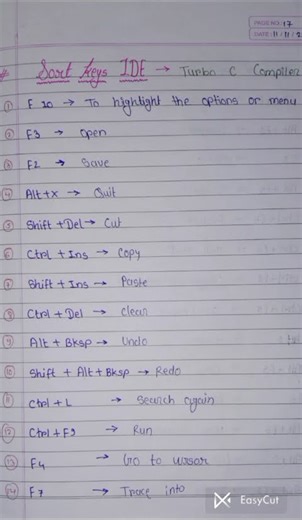 PAGE NO: 17
DATE: 11/11/2
Soart Keys IDE → Turbo C Compiler
① F 10 → To highlight the options or menu
② F3 → Open
③ F2 → Save
④ Alt+X → Quit
⑤ Shift + Del → Cut
⑥ Ctrl + Ins → Copy
⑦ Shift + Ins → Paste
⑧ Ctrl + Del → Clear
⑨ Alt + Bksp → Undo
⑩ Shift + Alt + Bksp → Redo
⑪ Ctrl + L → Search again
⑫ Ctrl + F9 → Run
⑬ F4 → Go to cursor
⑭ F7 → Trace into
EasyCut